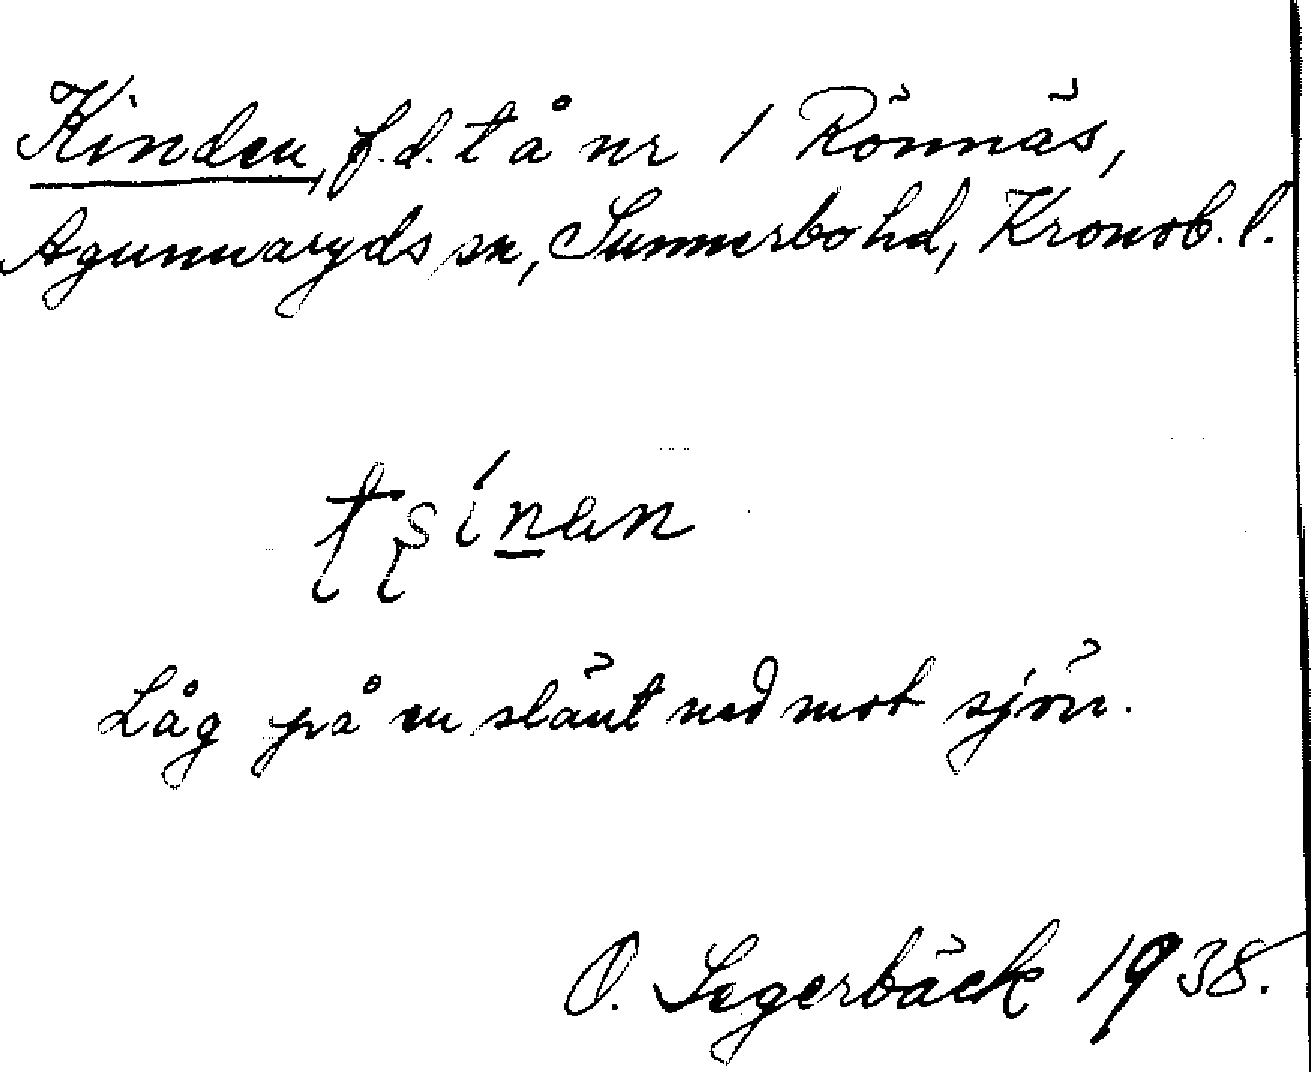 Kinden, f.d. t å nr 1 Rönnäs,
Agunnaryds sn, Sunnerbo hd, Kronob. l.
tʂínan
Låg på en slänt ned mot sjön.
O. Segerbäck 1938.